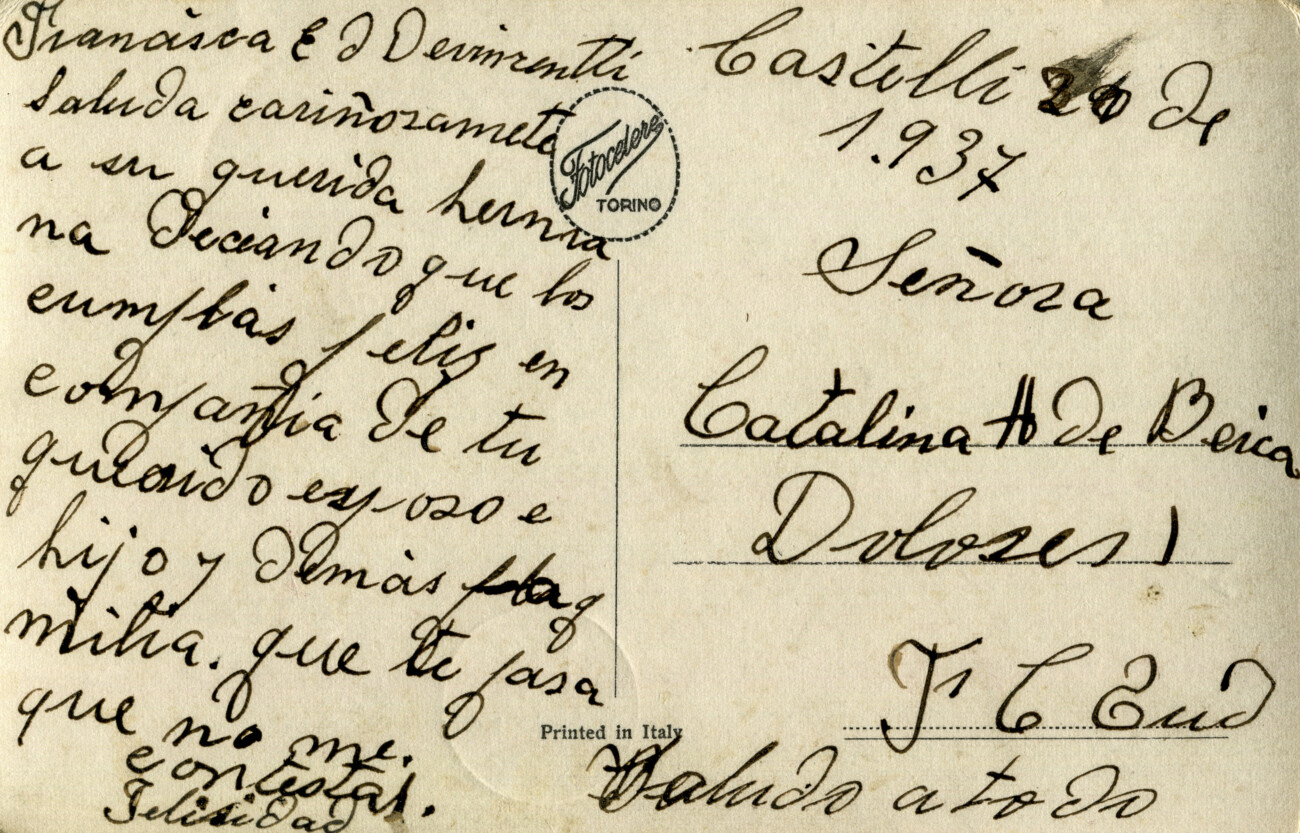 Francisca E D Devinzentti
Saluda cariñozamete
a su querida herma
na Deciando que los
cumplas feliz en
compañia de tu
querido esposo e
hijo y demas
milia. que te pasa
que no me.
contestas.
Felisidad
Castelli de
1.937
Fotocelere
TORINO
Señora
Catalina H de Beica
Dolores
F C Sud
Printed in Italy
Saludo a todo